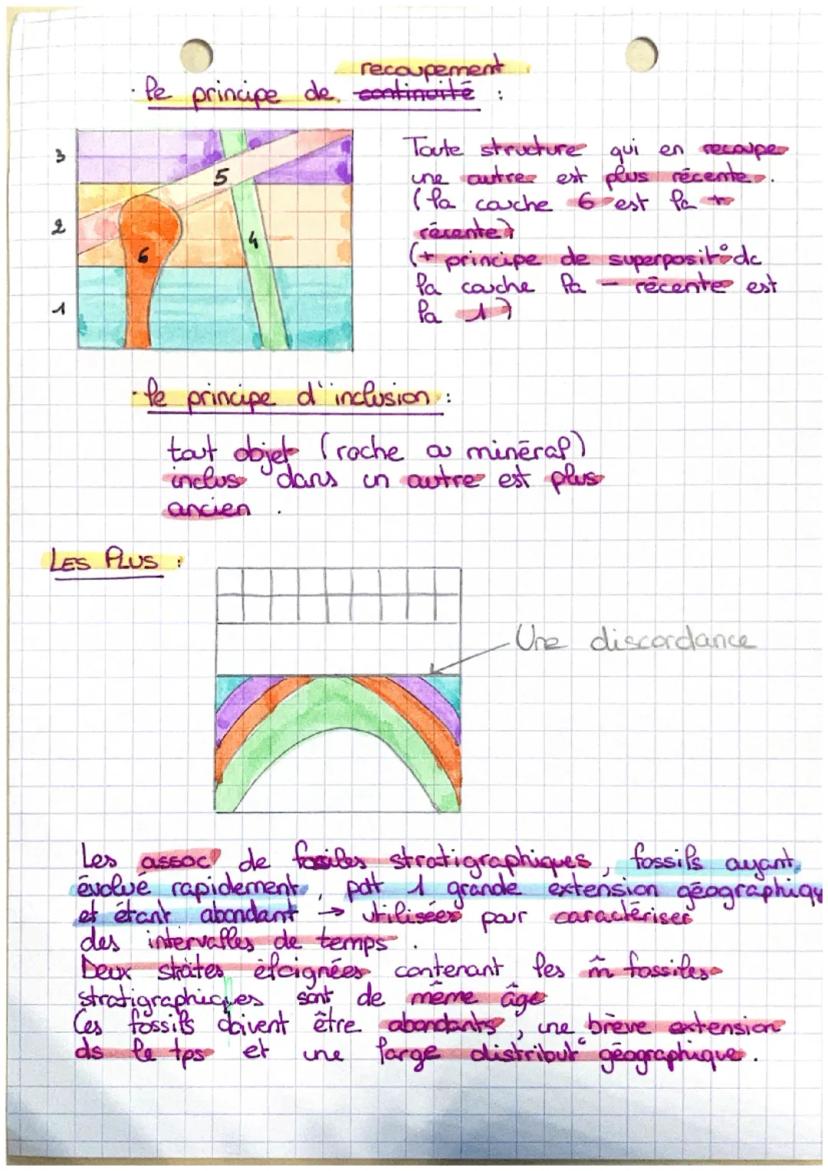 recoupement
· le principe de continuité :
3
2
1
5
4
6
Toute structure qui en recoupe
une autre est plus récente.
(la couche 6 est la +
récente)
(+ principe de superposit° dc
la couche la – récente est
la 1)
· le principe d'inclusion :
tout objet (roche ou minéral)
inclus dans un autre est plus
ancien .
LES PLUS :
Une discordance
Les assoc° de fossiles stratigraphiques, fossils ayant
évolué rapidement, pdt 1 grande extension géographiqu
et étant abondant → utilisées pour caractériser
des intervalles de temps .
Deux strates éloignées contenant les m̂ fossiles
stratigraphiques sont de même âge
Ces fossils doivent être abondants, une brève extension
ds le tps et une large distribut° géographique .